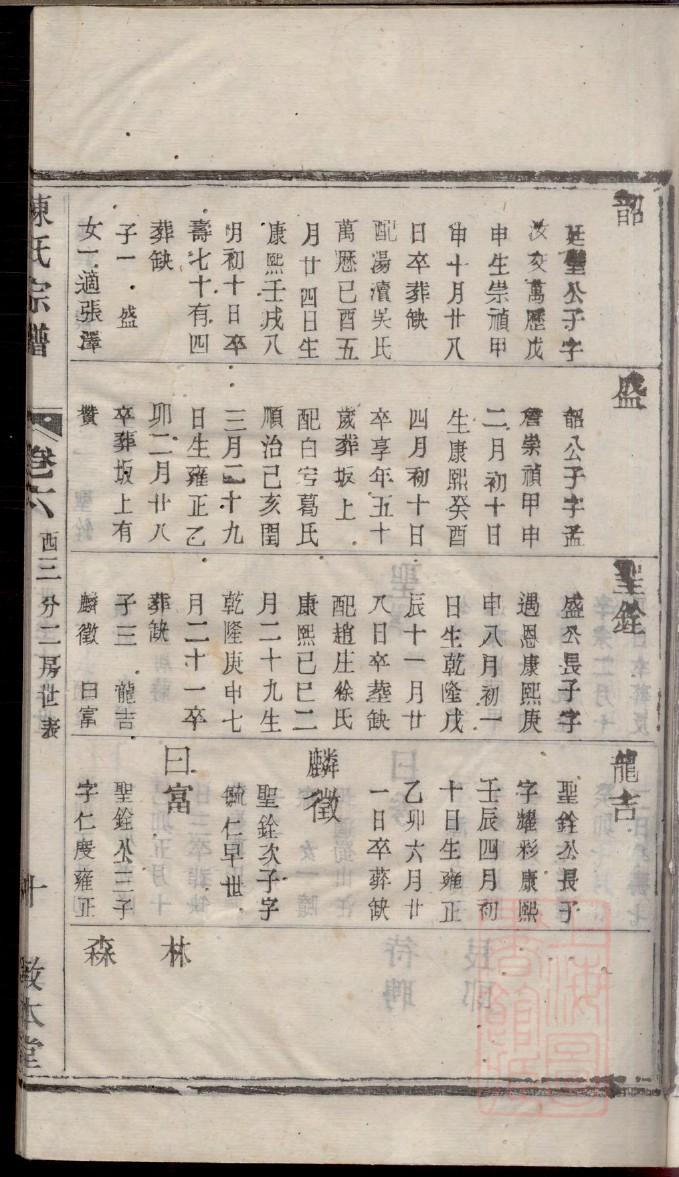 韶
廷璧公子字
汝亥萬歷戊
申生崇禎甲
申十月廿八
日卒葬缺
配湯瀆吳氏
萬歷己酉五
月廿四日生
康熙壬戌八
月初十日卒
壽七十有四
葬缺
子一 盛
女一適張澤
盛
韶公子字孟
詹崇禎甲申
二月初十日
生康熙癸酉
四月初十日
卒享年五十
歲葬坂上
配白宕葛氏
順治己亥閏
三月二十九
日生雍正乙
卯二月廿八
卒葬坂上有
贊
聖銓
盛公長子字
遇恩康熙庚
申八月初一
日生乾隆戊
辰十一月廿
八日卒葬缺
配趙庄徐氏
康熙己巳二
月二十九生
乾隆庚申七
月二十一卒
葬缺
子三 龍吉
麟徵 曰富
龍吉
聖銓公長子
字耀彩康熙
壬辰四月初
十日生雍正
乙卯六月廿
一日卒葬缺
麟徵
聖銓次子字
毓仁早世
曰富
聖銓公三子
字仁慶雍正
林
森
陳氏宗譜 卷六 酉三分二房世表 十 敦本堂